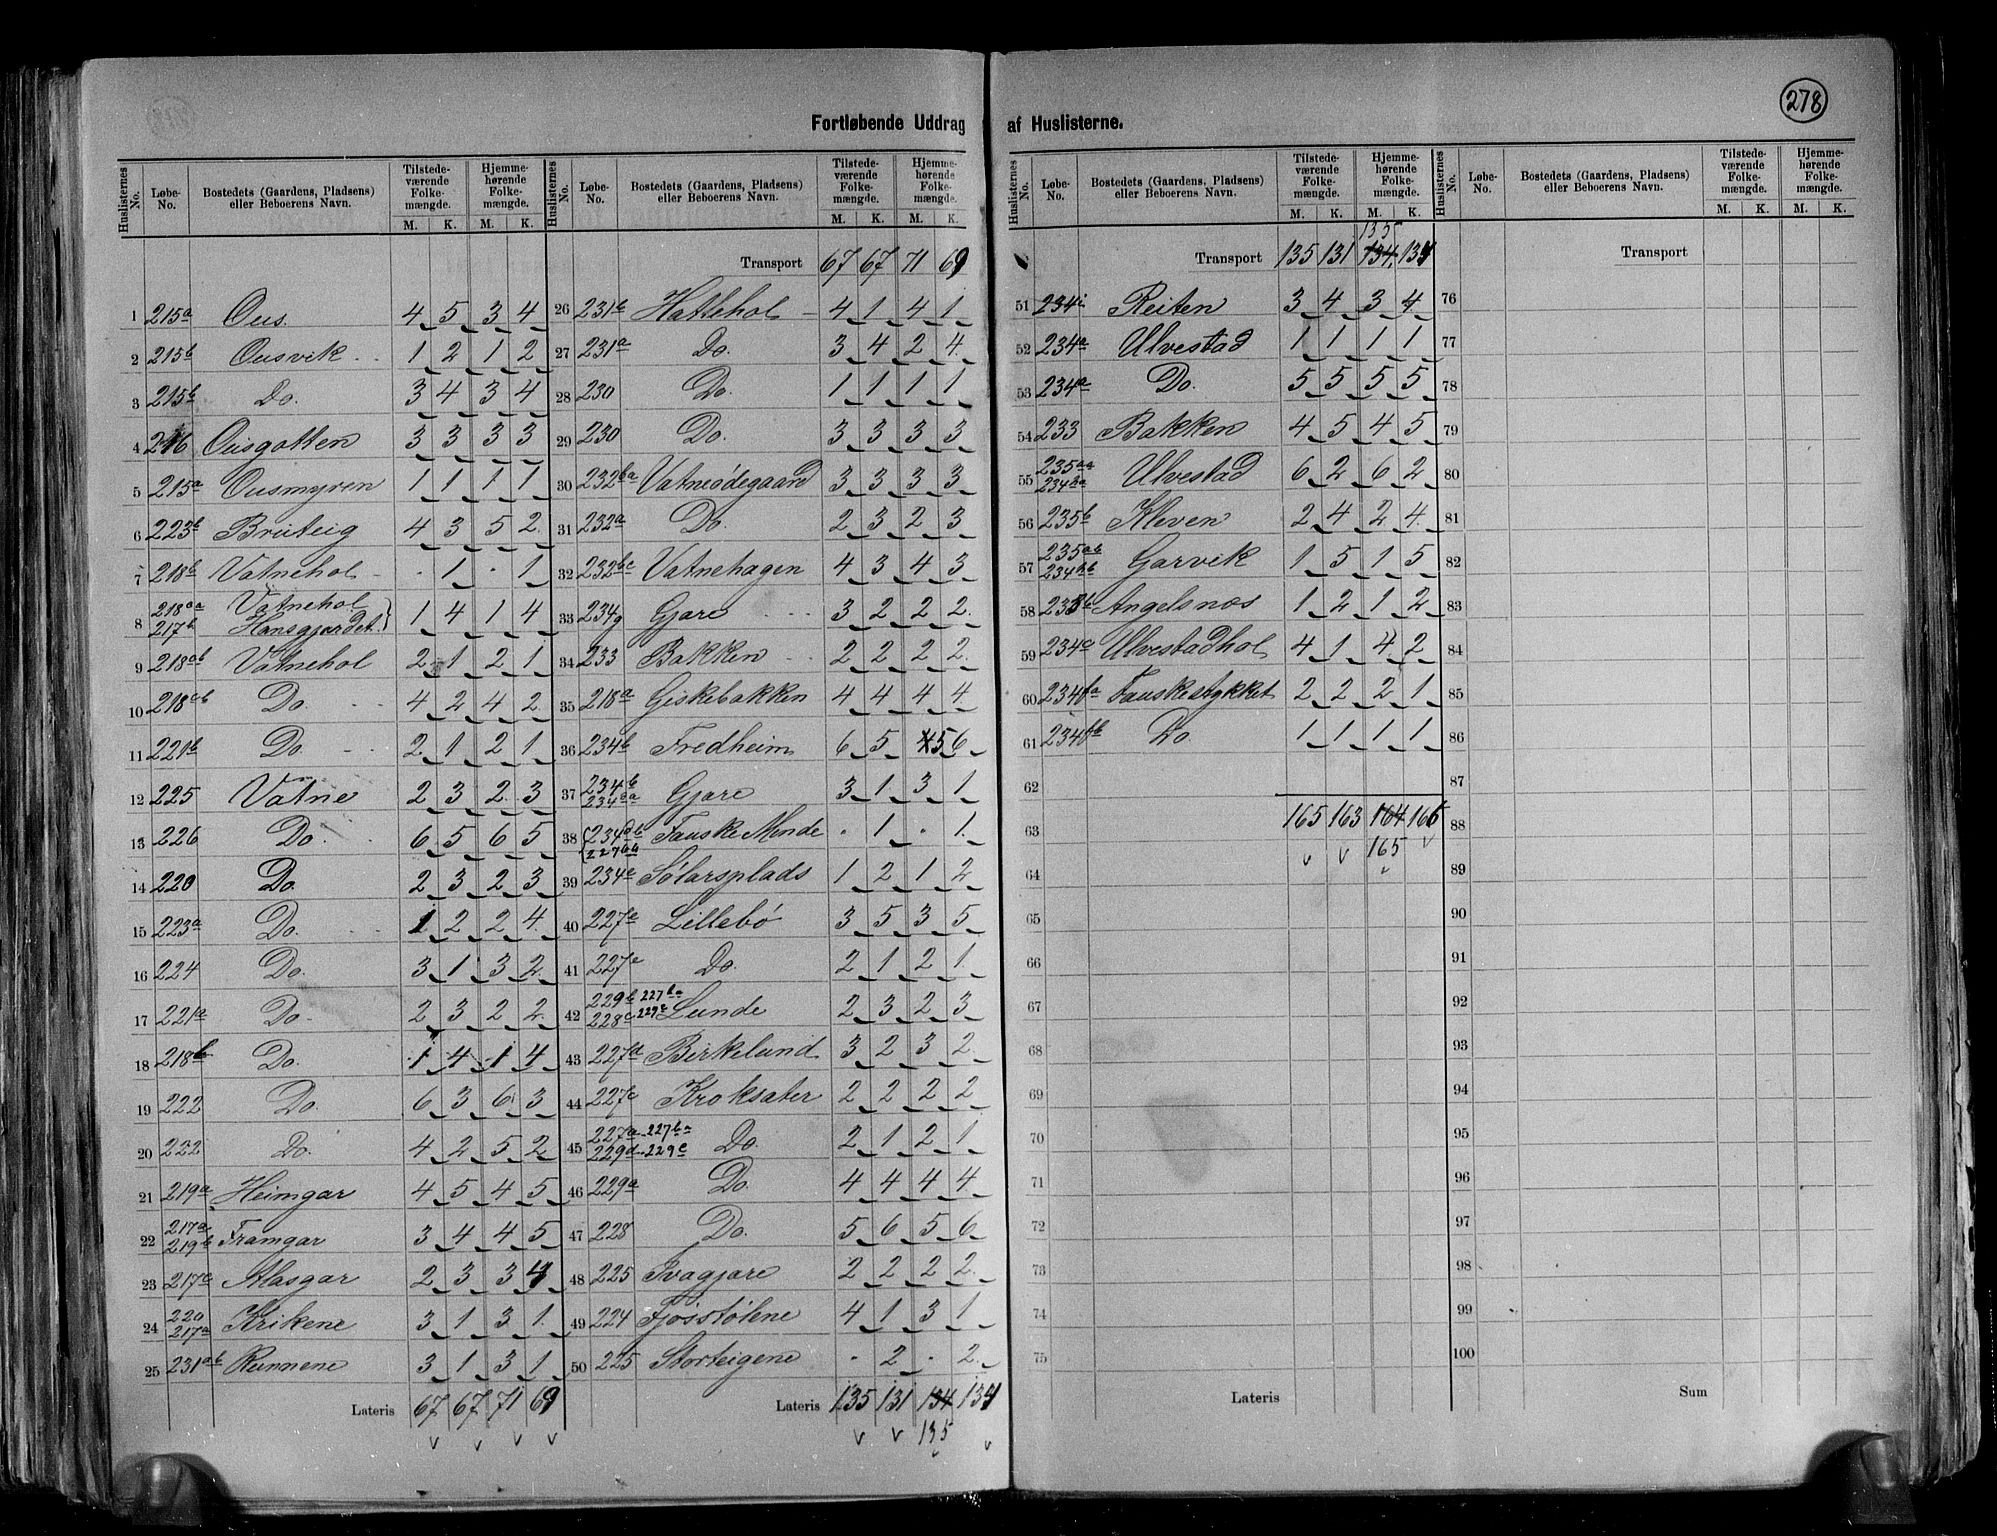 278
Fortløbende Uddrag af Huslisterne.
Huslisternes No. | Løbe-No. | Bostedets (Gaardens, Pladsens) eller Beboerens Navn. | Tilstedeværende Folkemængde. M. K. | Hjemmehørende Folkemængde. M. K.
1 215a Ous. 4 5 3 4
2 215b Ousvik 1 2 1 2
3 215b Do. 3 4 3 4
4 216 Ousgotten 3 3 3 3
5 215a Ousmyren 1 1 1 1
6 223b Bruteig 4 3 5 2
7 218b Vatnehol . 1 . 1
8 218aa 217b Vatnehol Hansgjærdet } 1 4 1 4
9 218ab Vatnehol 2 1 2 1
10 218ab Do. 4 2 4 2
11 221b Do. 2 1 2 1
12 225 Vatne 2 3 2 3
13 226 Do. 6 5 6 5
14 220 Do. 2 3 2 3
15 223a Do. 1 2 2 4
16 224 Do. 3 1 3 2
17 221a Do. 2 3 2 2
18 218b Do. 1 4 1 4
19 222 Do. 6 3 6 3
20 222 Do. 4 2 5 2
21 219a Heimgar 4 5 4 5
22 217a 219b Framgar 3 4 4 5
23 217c Alasgar 2 3 3 4
24 220 217a Krikene 3 1 3 1
25 231ab Runnene 3 1 3 1
Lateris 67 67 71 69
Huslisternes No. | Løbe-No. | Bostedets (Gaardens, Pladsens) eller Beboerens Navn. | Tilstedeværende Folkemængde. M. K. | Hjemmehørende Folkemængde. M. K.
Transport 67 67 71 69
26 231b Hattehol 4 1 4 1
27 231a Do. 3 4 2 4
28 230 Do. 1 1 1 1
29 230 Do. 3 3 3 3
30 232ba Vatneødegaard 3 3 3 3
31 232a Do. 2 3 2 3
32 232bc Vatnehagen 4 3 4 3
33 234g Gjære 3 2 2 2
34 233 Bakken 2 2 2 2
35 218a Giskebakken 4 4 4 4
36 234b Fredheim 6 5 5 6
37 234b 234da Gjære 3 1 3 1
38 234db 227bb Fauske Minde . 1 . 1
39 234e Sølarsplads 1 2 1 2
40 227c Lillebø 3 5 3 5
41 227c Do. 2 1 2 1
42 229b 227ba 228c 229c Lunde 2 3 2 3
43 227a Birkelund 3 2 3 2
44 227c Kroksæter 2 2 2 2
45 227a 227ba 229d 229c Do. 2 1 2 1
46 229a Do. 4 4 4 4
47 228 Do. 5 6 5 6
48 225 Svagjære 2 2 2 2
49 224 Fjøsstølene 4 1 3 1
50 225 Storteigene . 2 . 2
Lateris 135 131 134 134
135
Huslisternes No. | Løbe-No. | Bostedets (Gaardens, Pladsens) eller Beboerens Navn. | Tilstedeværende Folkemængde. M. K. | Hjemmehørende Folkemængde. M. K.
135
Transport 135 131 134 134
51 234i Reiten 3 4 3 4
52 234a Ulvestad 1 1 1 1
53 234a Do. 5 5 5 5
54 233 Bakken 4 5 4 5
55 235aa 234ha Ulvestad 6 2 6 2
56 235b Kleven 2 4 2 4
57 235ab 234hb Garvik 1 5 1 5
58 Angelsnæs 1 2 1 2
59 234c Ulvestadhol 4 1 4 2
60 234fa Fauskestykket 2 2 2 1
61 234fb Do. 1 1 1 1
62
63 165 163 164 166
165
64
65
66
67
68
69
70
71
72
73
74
75
Lateris
Huslisternes No. | Løbe-No. | Bostedets (Gaardens, Pladsens) eller Beboerens Navn. | Tilstedeværende Folkemængde. M. K. | Hjemmehørende Folkemængde. M. K.
Transport
76
77
78
79
80
81
82
83
84
85
86
87
88
89
90
91
92
93
94
95
96
97
98
99
100
Sum